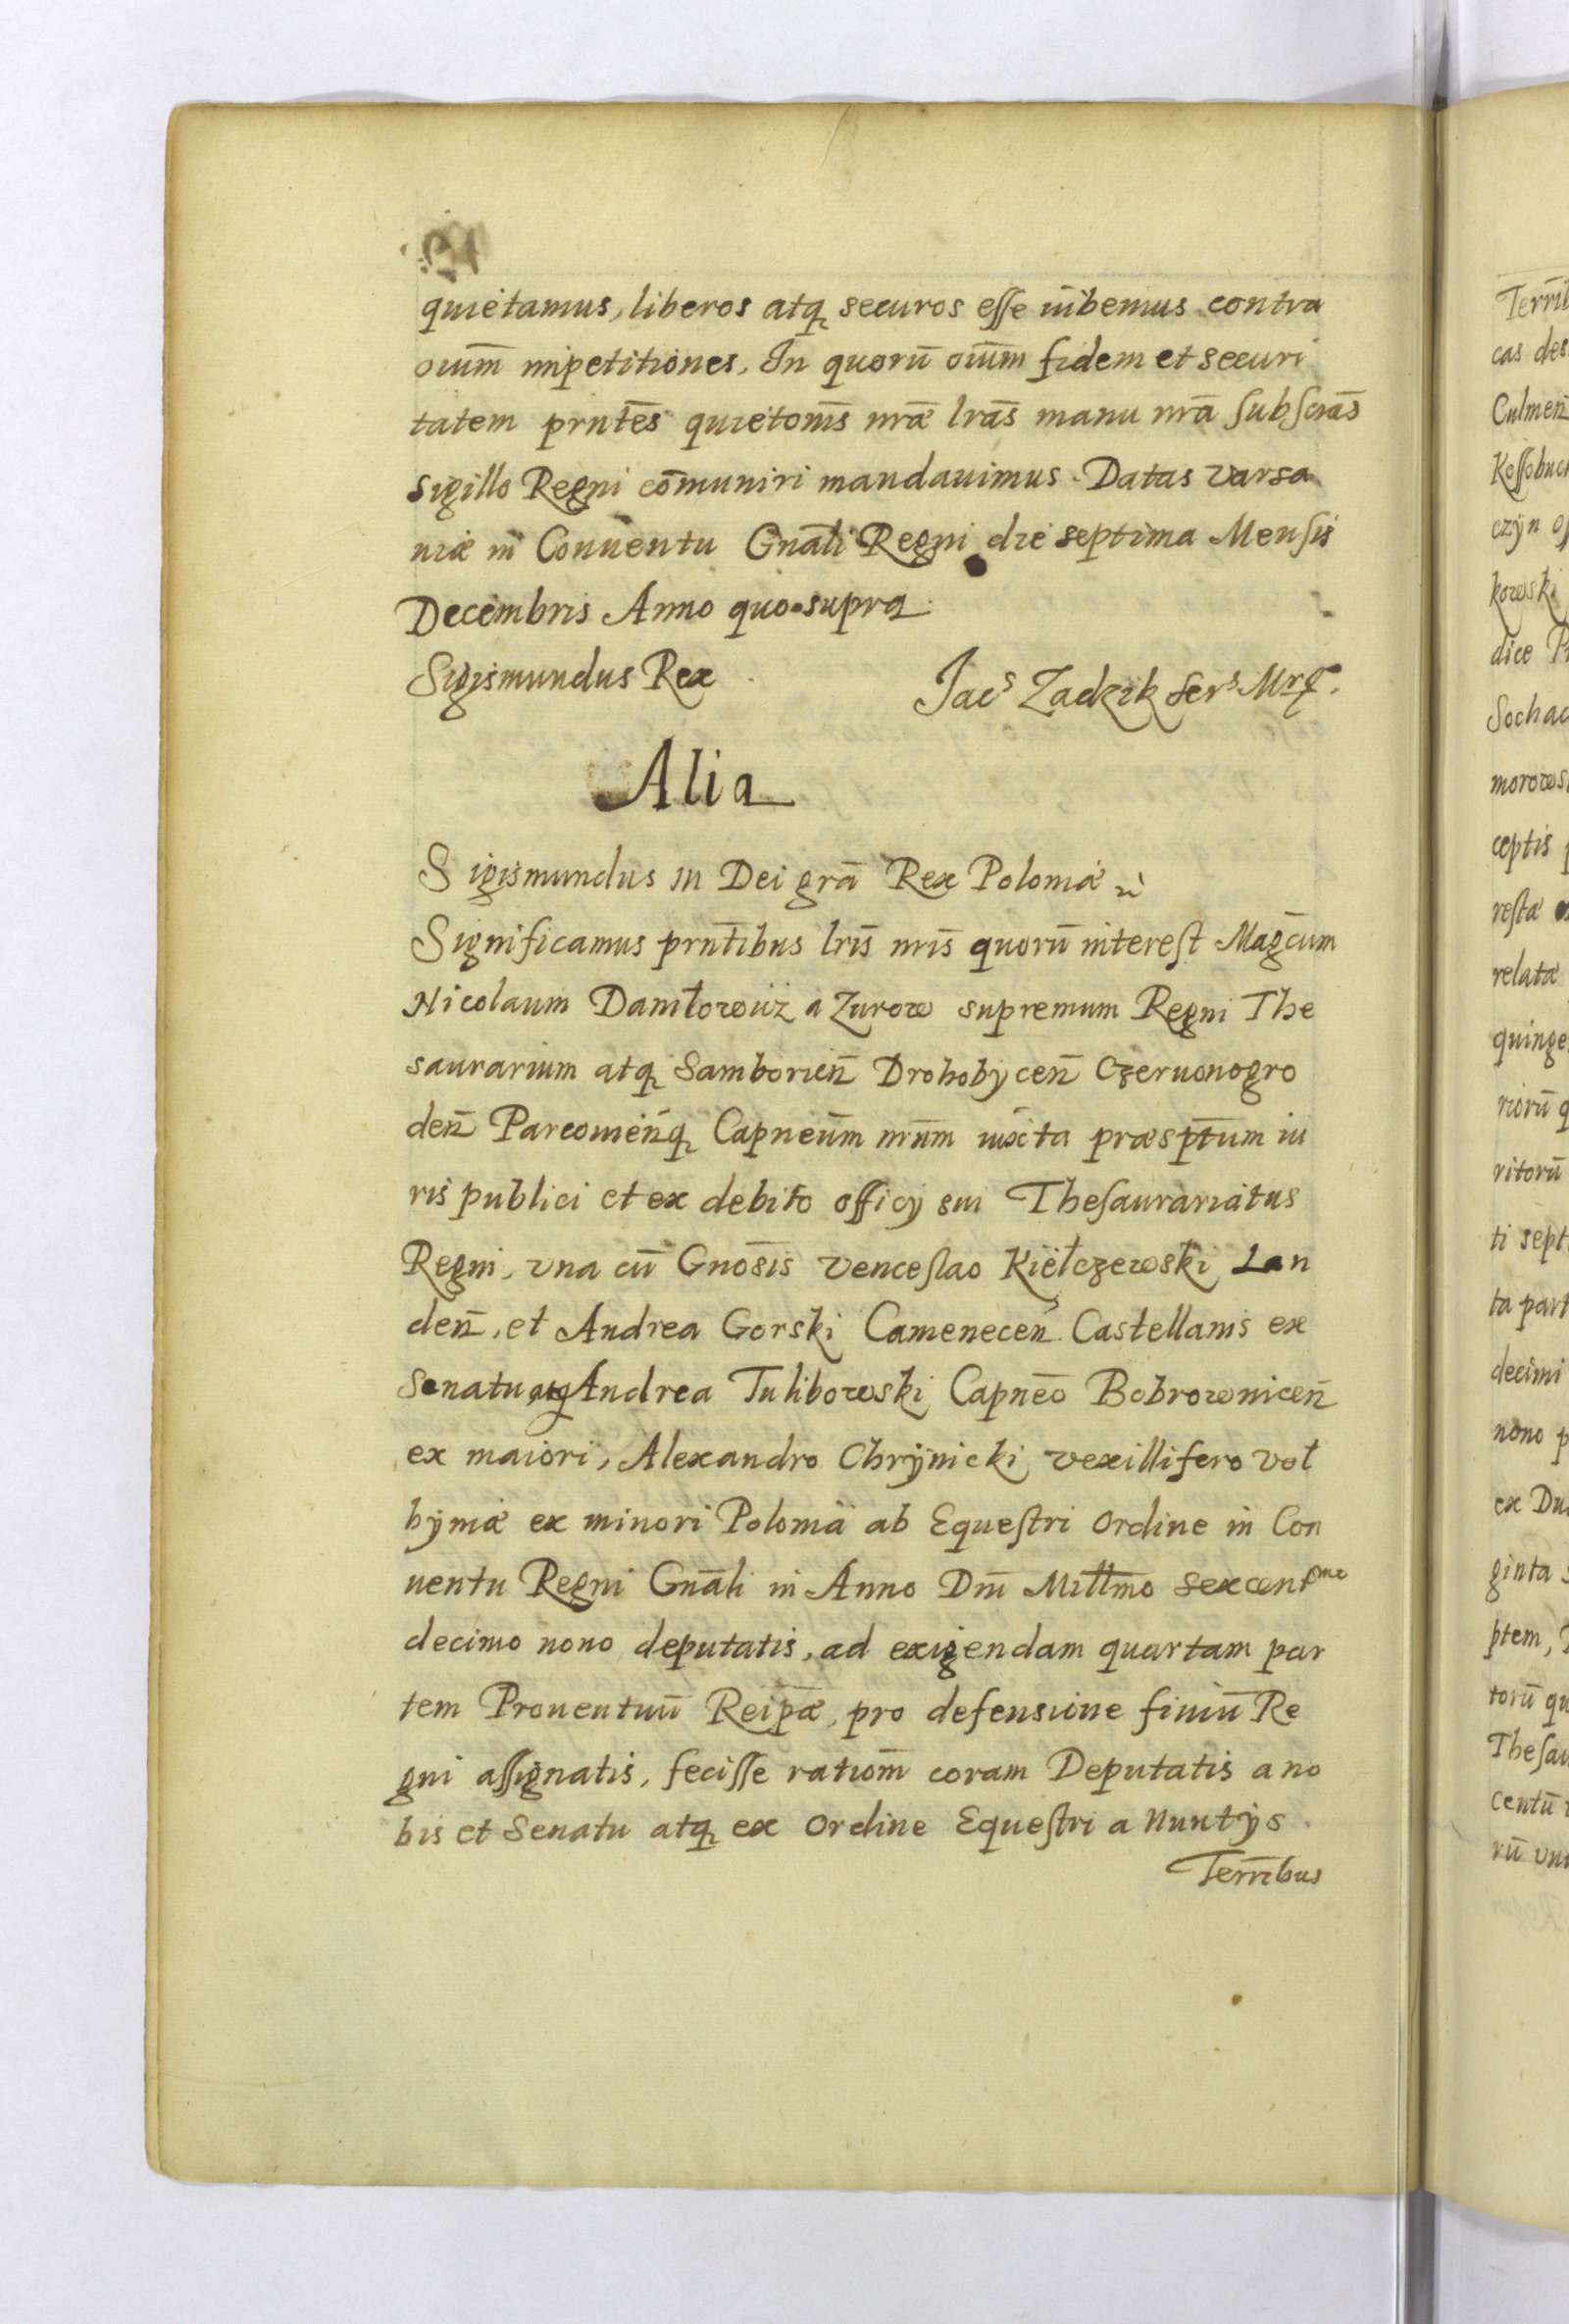 quietamus, liberos atq; securos esse iubemus contra
oium̄ impetitiones, In quorū oium̄ fidem et securi
tatem prntēs quietonīs nrae lrās manu nrā subscrās
sigillo Regni cōmuniri mandauimus. Datas varsa
uiae in Conuentu Gnāli Regni die septima Mensis
Decembris Anno quo supra.
Sigismundus Rex
Jacs Zadzik Sers Mrq.
Alia
Sigismundus III Dei grā Rex Poloniae
Significamus prntībus lrīs nrīs quorū interest Magcūm
Nicolaum Daniłowicz a Zurow supremum Regni The
saurarium atq; Samborien̄ Drohobycen̄ Czeruonogro
den̄ Parcouien̄q; Capneūm nrūm iuxta praesptūm iu
ris publici et ex debito officij sui Thesaurariatus
Regni, vna cū Gnōsis Venceslao Kiełczewski Lan
den̄, et Andrea Gorski Camenecen̄ Castellanis ex
Senatu, atq; Andrea Tulibowski Capnēo Bobrownicen̄
ex maiori, Alexandro Chrÿnicki vexillifero Vol
hyniae ex minori Polonia ab Equestri Ordine in Con
uentu Regni Gnāli in Anno Dnī Millmō sexcentmo
decimo nono deputatis, ad exigendam quartam par
tem Prouentuū Reipāe, pro defensione finiū Re
gni assignatis, fecisse rationī coram Deputatis a no
bis et Senatu atq; ex Ordine Equestri a Nuntijs
Terrībus
Terrīb
cas des
Culmen̄
Kossobuc
czÿn
kowski
dice
Sochac
morows
ceptis
resta
relatae
quinge
riorū q
ritorū
ti sept
ta part
decimi
nono p
ex Du
ginta
ptem,
torū qu
Thesau
centū
rū vn